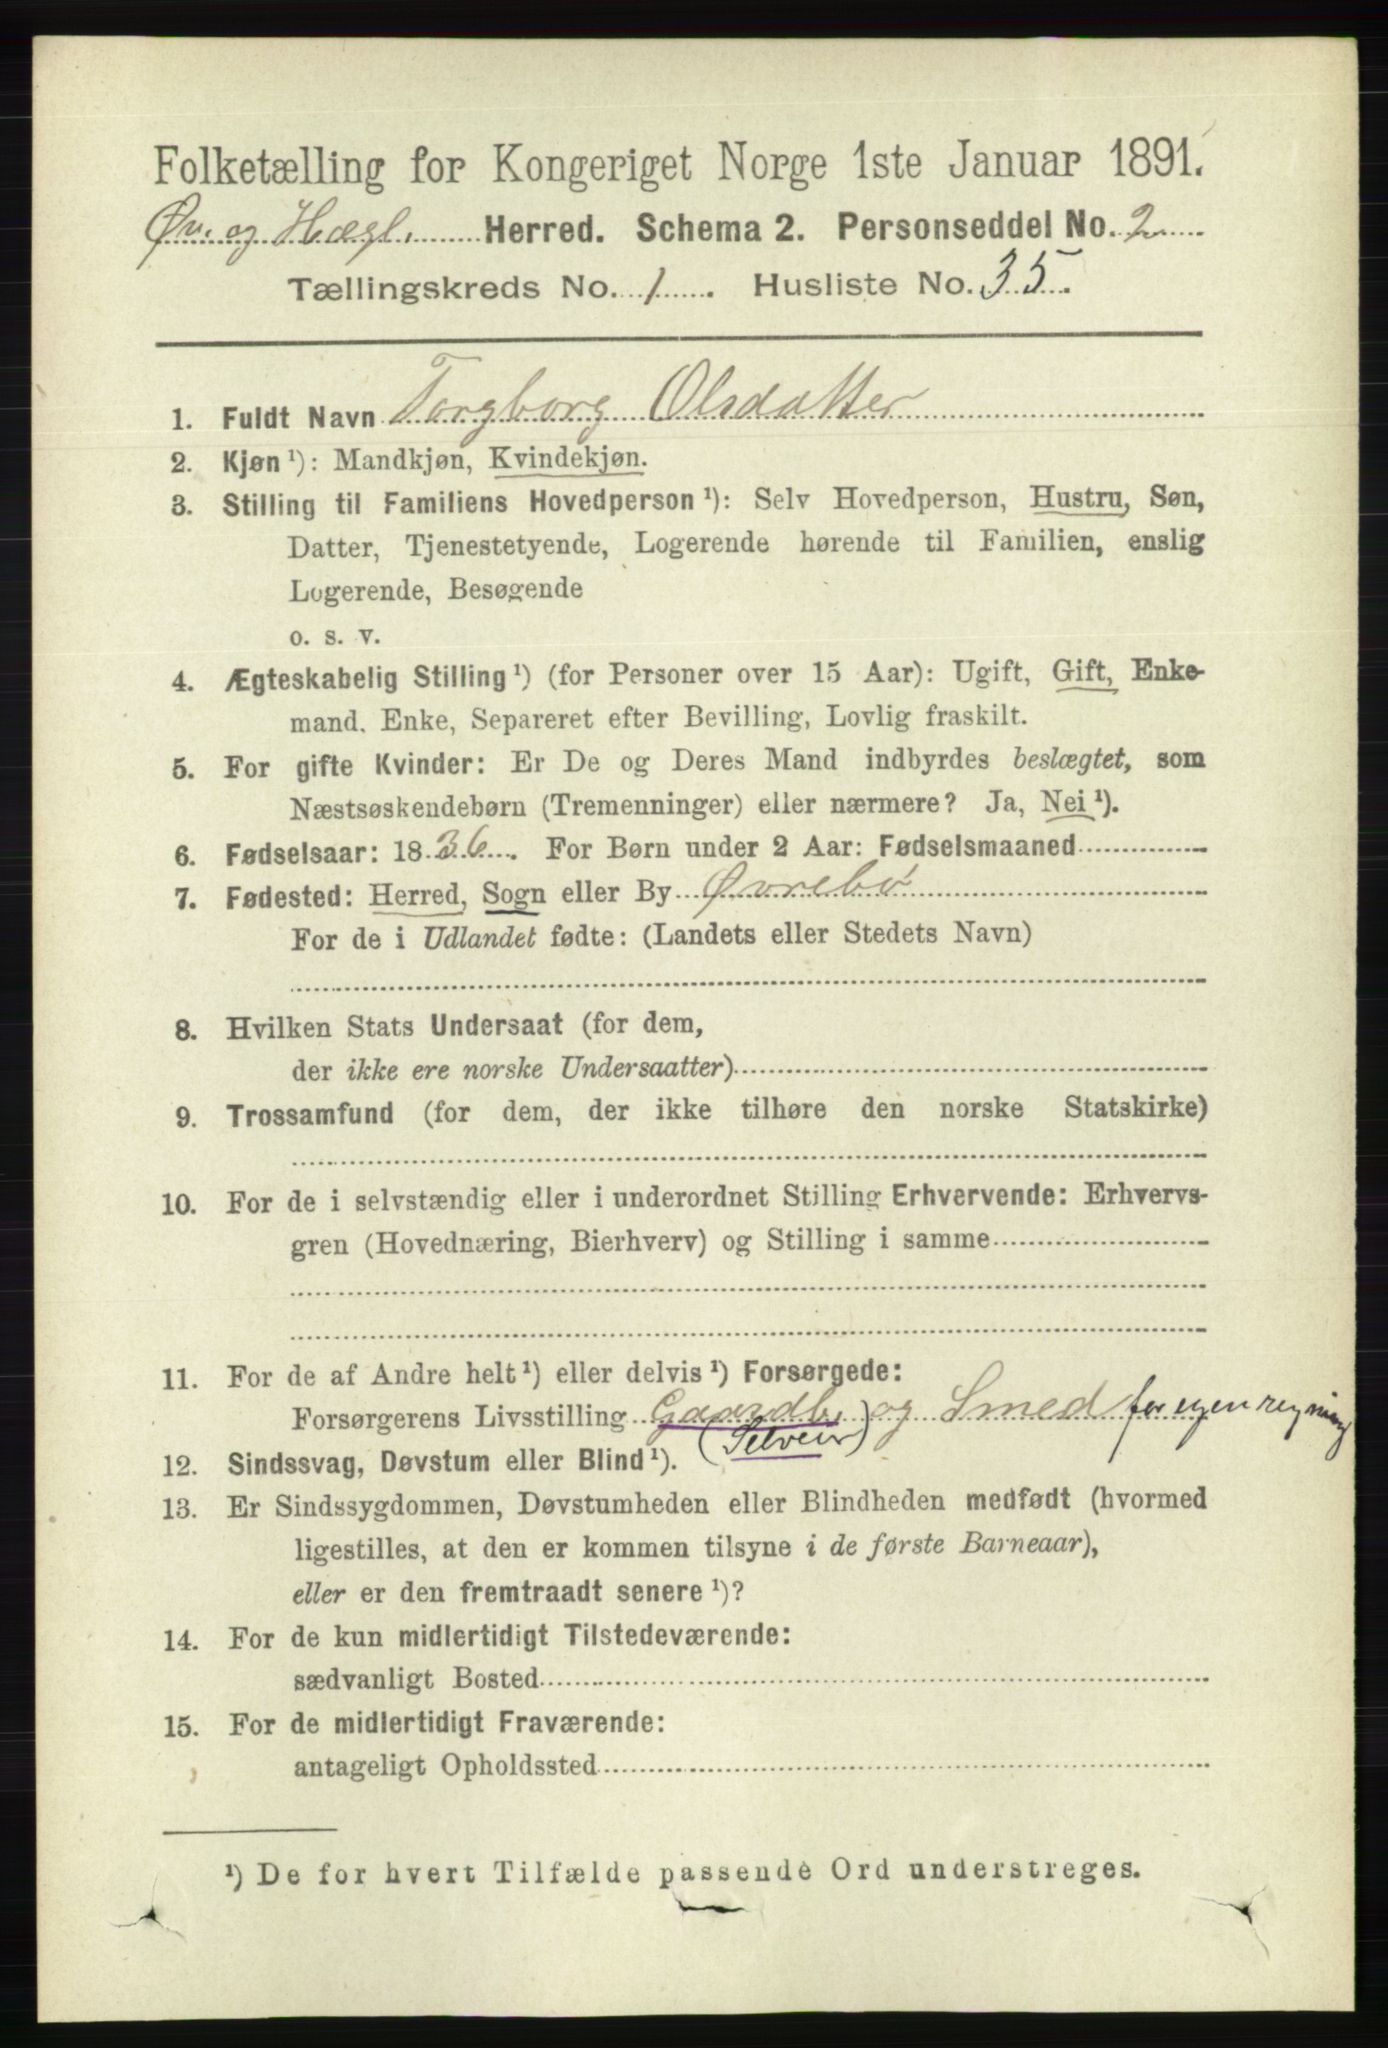 Folketælling for Kongeriget Norge 1ste Januar 1891.
Øv. og Hægl. Herred. Schema 2. Personseddel No. 2
Tællingskreds No. 1. Husliste No. 35.
1. Fuldt Navn Torgborg Olsdatter
2. Kjøn ¹): Mandkjøn, Kvindekjøn.
3. Stilling til Familiens Hovedperson ¹): Selv Hovedperson, Hustru, Søn,
Datter, Tjenestetyende, Logerende hørende til Familien, enslig
Logerende, Besøgende
o. s. v.
4. Ægteskabelig Stilling ¹) (for Personer over 15 Aar): Ugift, Gift, Enke-
mand, Enke, Separeret efter Bevilling, Lovlig fraskilt.
5. For gifte Kvinder: Er De og Deres Mand indbyrdes beslægtet, som
Næstsøskendebørn (Tremenninger) eller nærmere? Ja, Nei ¹).
6. Fødselsaar: 1836. For Børn under 2 Aar: Fødselsmaaned
7. Fødested: Herred, Sogn eller By Øvrebø
For de i Udlandet fødte: (Landets eller Stedets Navn)
8. Hvilken Stats Undersaat (for dem,
der ikke ere norske Undersaatter)
9. Trossamfund (for dem, der ikke tilhøre den norske Statskirke)
10. For de i selvstændig eller i underordnet Stilling Erhvervende: Erhvervs-
gren (Hovednæring, Bierhverv) og Stilling i samme
11. For de af Andre helt ¹) eller delvis ¹) Forsørgede:
Forsørgerens Livsstilling Gaardb. og Smed for egen regning
(Selveier)
12. Sindssvag, Døvstum eller Blind ¹).
13. Er Sindssygdommen, Døvstumheden eller Blindheden medfødt (hvormed
ligestilles, at den er kommen tilsyne i de første Barneaar),
eller er den fremtraadt senere ¹)?
14. For de kun midlertidigt Tilstedeværende:
sædvanligt Bosted
15. For de midlertidigt Fraværende:
antageligt Opholdssted
¹) De for hvert Tilfælde passende Ord understreges.